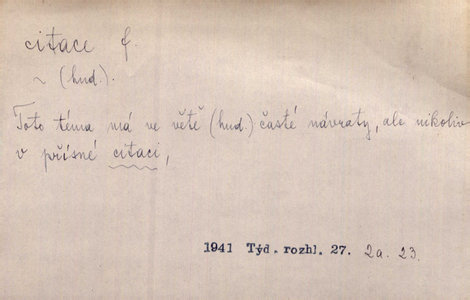 citace f.
~ (hud.).
Toto téma má ve větě (hud.) časté návraty, ale nikoliv
v přísné citaci,
1941 Týd. rozhl. 27. 2a. 23.